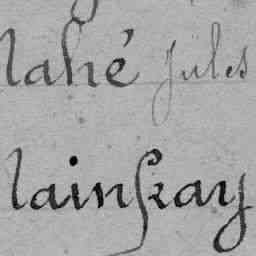 lahé Jules
lainſkay